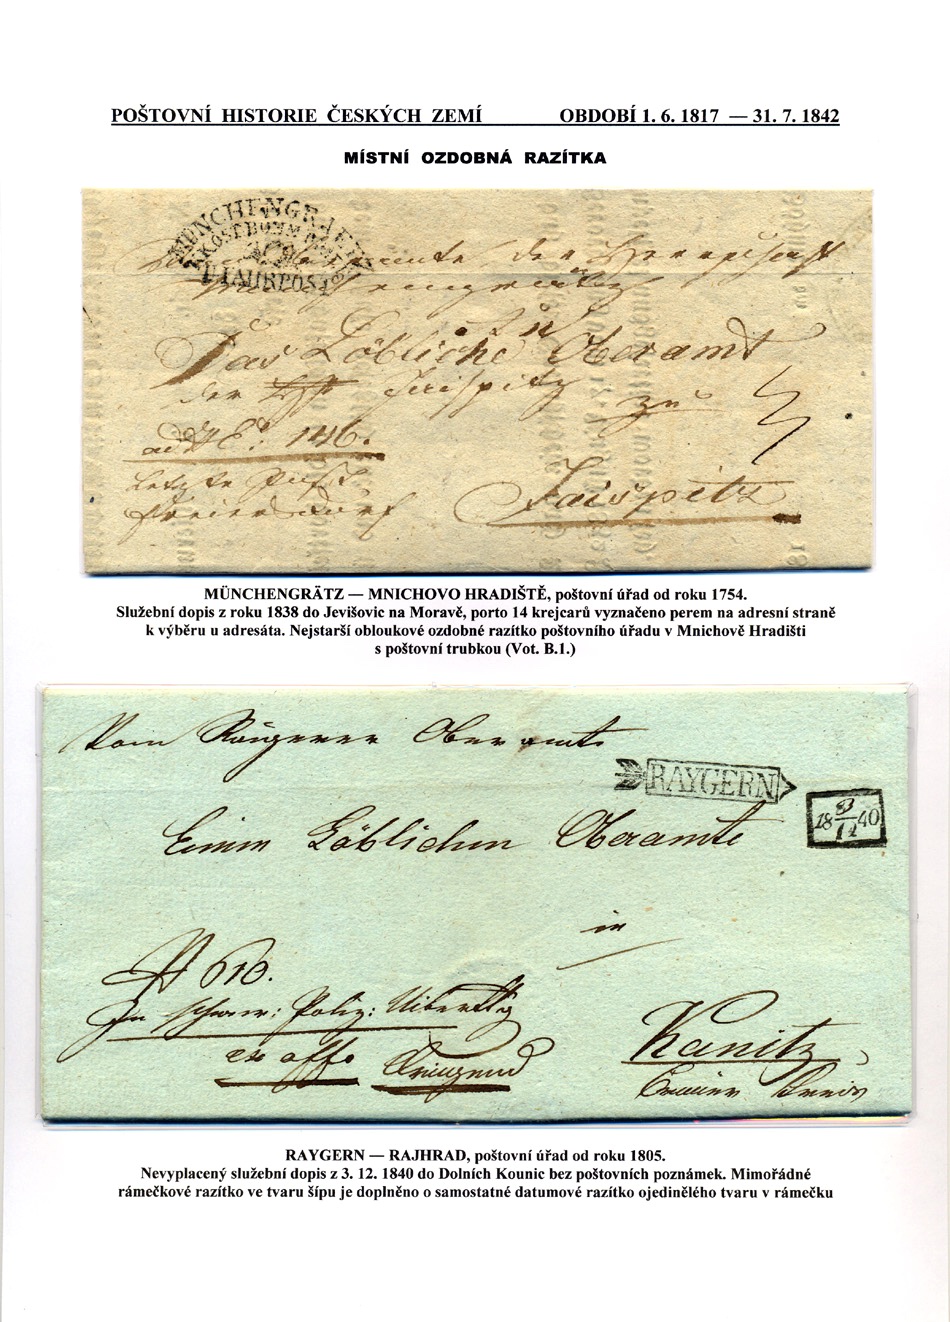 POŠTOVNÍ HISTORIE ČESKÝCH ZEMÍ OBDOBÍ 1. 6. 1817 — 31. 7. 1842
MÍSTNÍ OZDOBNÁ RAZÍTKA
MÜNCHENGRAETZ
der Herrschaft
An
Das Löbliche Oberamt
der Jaispitz
zu
146.
letzte Post
Jaispitz
MÜNCHENGRÄTZ — MNICHOVO HRADIŠTĚ, poštovní úřad od roku 1754.
Služební dopis z roku 1838 do Jevišovic na Moravě, porto 14 krejcarů vyznačeno perem na adresní straně
k výběru u adresáta. Nejstarší obloukové ozdobné razítko poštovního úřadu v Mnichově Hradišti
s poštovní trubkou (Vot. B.1.)
Vom Raygerner Oberamte
RAYGERN
18 3/12 40
Einem Löblichen Oberamte
in
ex offo Dringend
Kanitz
RAYGERN — RAJHRAD, poštovní úřad od roku 1805.
Nevyplacený služební dopis z 3. 12. 1840 do Dolních Kounic bez poštovních poznámek. Mimořádné
rámečkové razítko ve tvaru šípu je doplněno o samostatné datumové razítko ojedinělého tvaru v rámečku